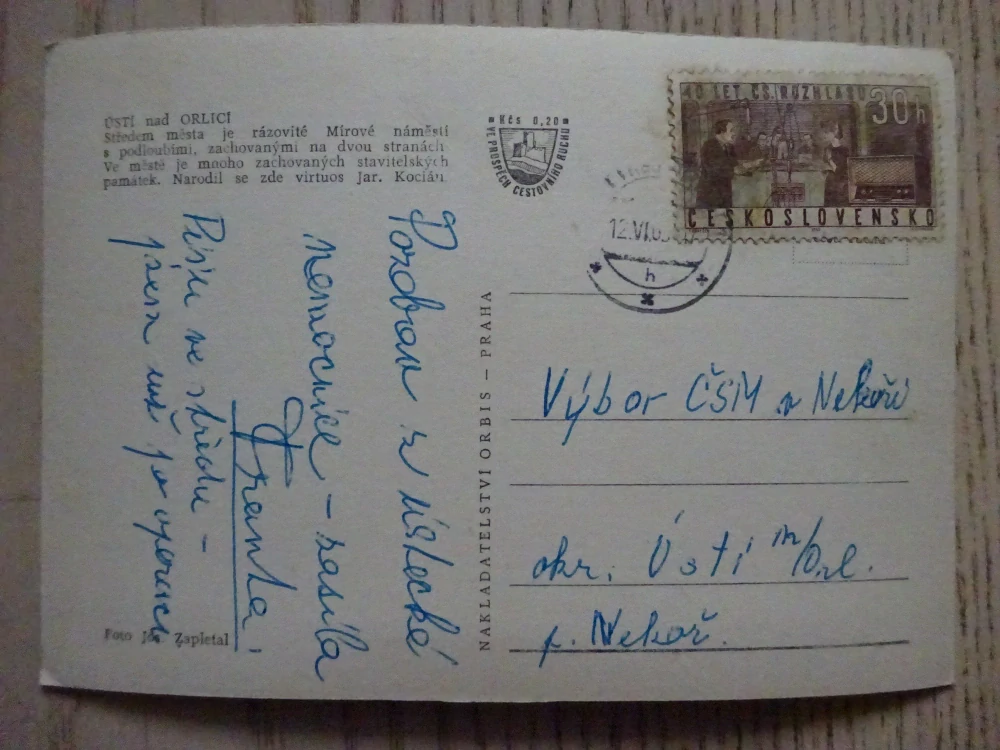 ÚSTÍ nad ORLICÍ
Středem města je rázovité Mírové náměstí
s podloubími, zachovanými na dvou stranách.
Ve městě je mnoho zachovaných stavitelských
památek. Narodil se zde virtuos Jar. Kocián.
Kčs 0,20
VE PROSPĚCH CESTOVNÍHO RUCHU
40 LET ČS. ROZHLASU 30h
ČESKOSLOVENSKO
12.VI.
h
Pozdrav z ústecké
nemocnice – zasílá
Franta.
Píši ve středu –
jsem už po operaci
NAKLADATELSTVÍ ORBIS – PRAHA
Výbor ČSM v Nekoři
okr. Ústí n/Orl.
p. Nekoř.
Foto Zapletal